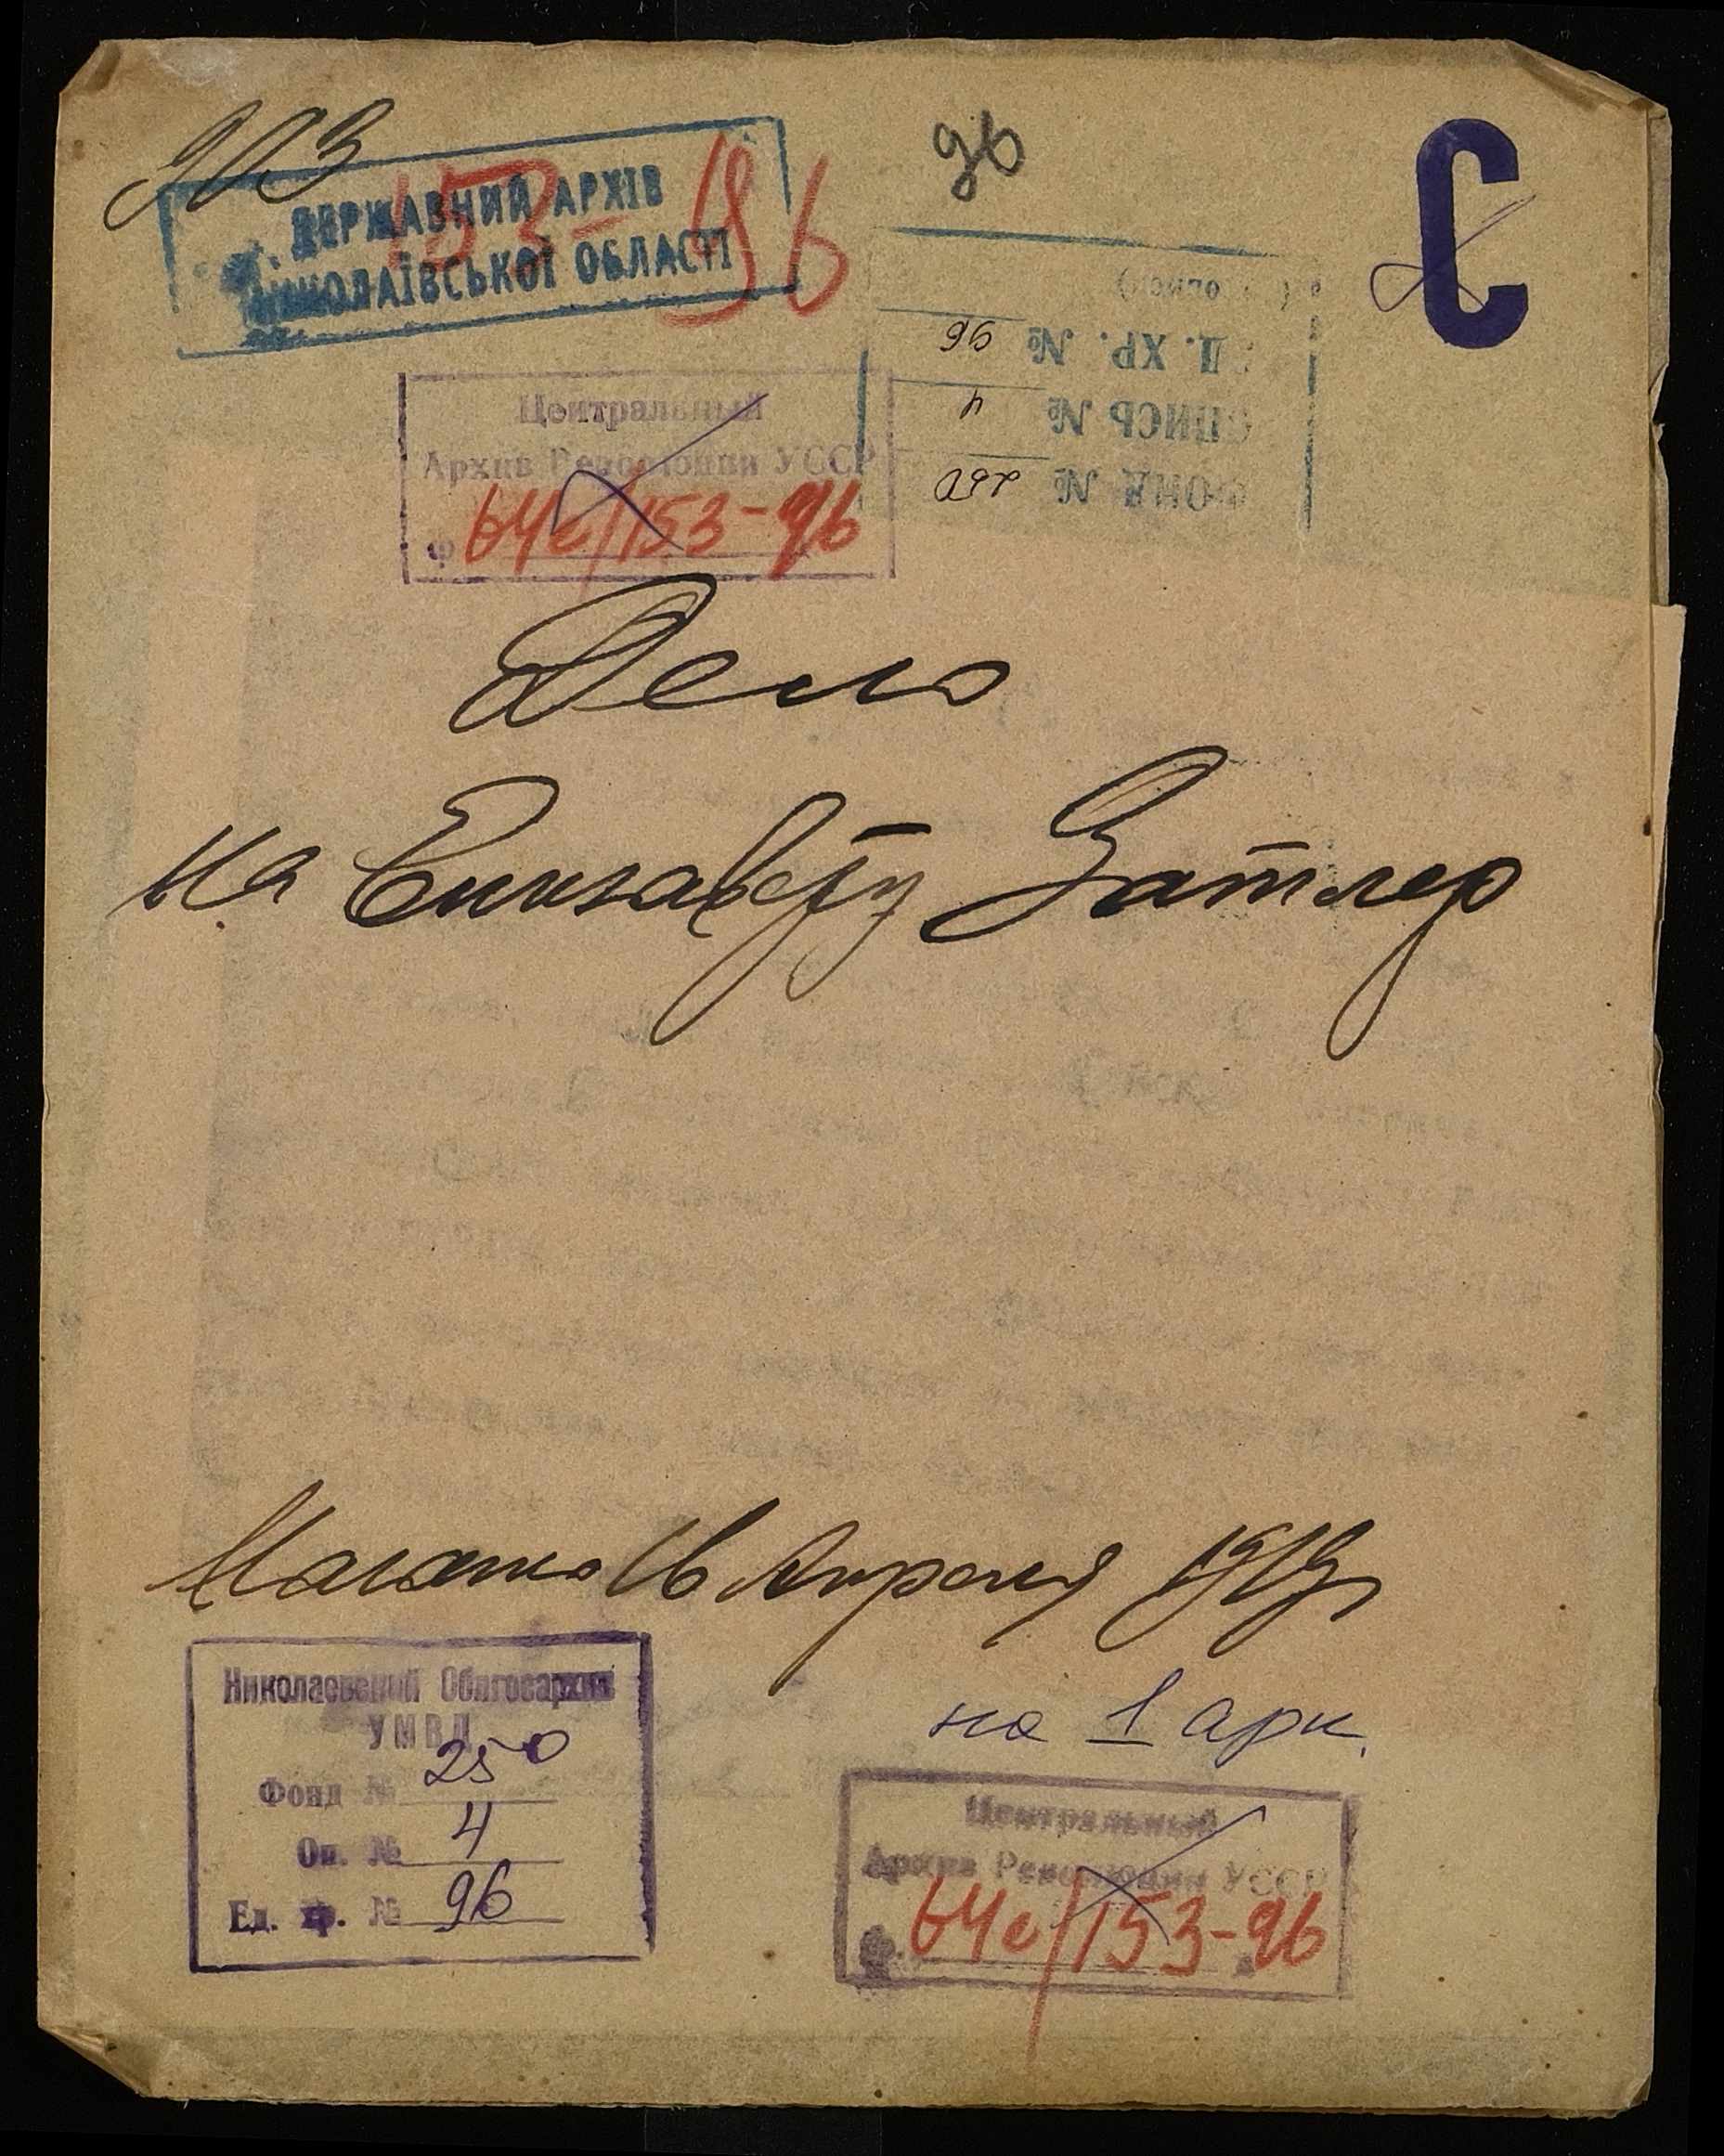 903
96
С
153-96
ДЕРЖАВНИЙ АРХІВ
МИКОЛАЇВСЬКОЇ ОБЛАСТІ
ФОНД № 250
ОПИСЬ № 4
ЕД. ХР. № 96
Центральный
Архив Революции УССР
Ф 64с/153-96
Дело
на Елизавету Затлер
16 Апреля 1919
на 1 арк.
Николаевский Облгосархив
УМВД
Фонд № 250
Оп. № 4
Ед. хр. № 96
Центральный
Архив Революции УССР
Ф. 64с/153-96